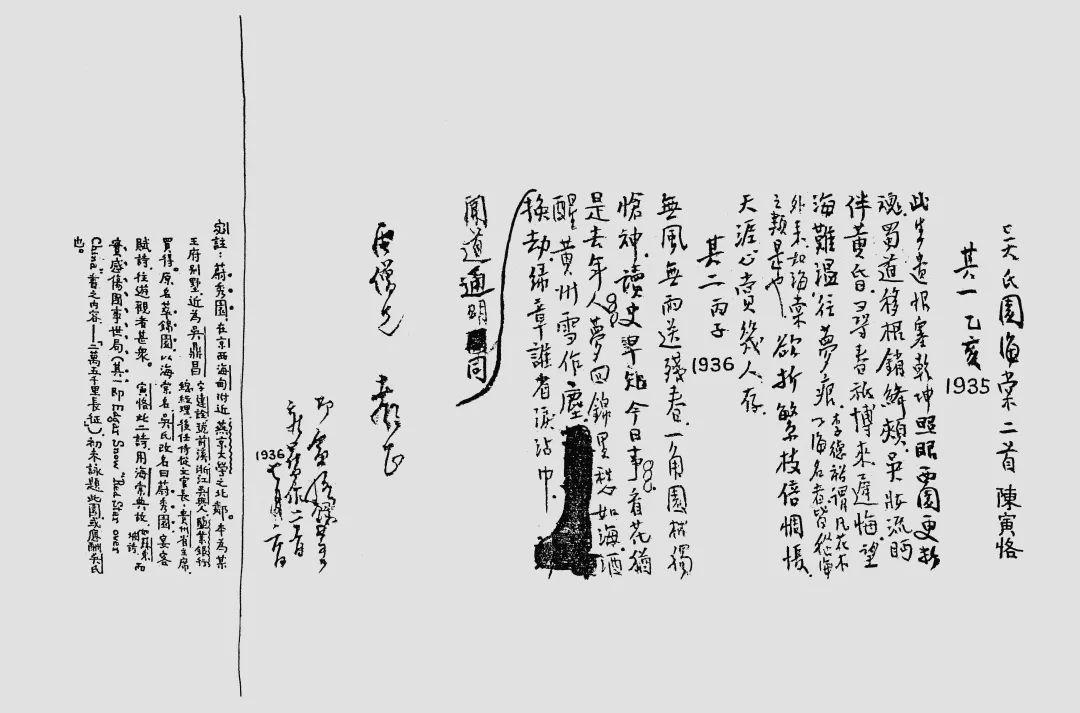 吳氏園海棠二首 陳寅恪
其一 乙亥 1935
此生遺恨塞乾坤。照眼西園更斷
魂。蜀道移根銷絳頰。吳妝流眄
伴黃昏。尋春祗博來遲悔。望
海難溫往夢痕。李德裕謂凡花木以海名者皆從海
外來。如海棠之類是也。欲折繁枝倍惆悵。
天涯心賞幾人存。
其二 丙子 1936
無風無雨送殘春。一角園林獨
愴神。讀史早知今日事。看花猶
是去年人。夢回錦里愁如海。酒
醒黃州雪作塵。
聞道通明同
換劫。綠章誰省淚沾巾。
雨僧兄 教正
1936
宓註：蔚秀園在京西海甸附近燕京大學之北鄰。本為某
王府別墅，近為吳鼎昌 字達詮號前溪浙江吳興人鹽業銀行總經理，後任侍從文官長、貴州省主席
買得。原名萃錦園，以海棠名，吳氏改名曰蔚秀園，宴客
賦詩，往遊觀者甚衆。 寅恪此二詩，用海棠典故（如蘇東坡詩）而
實感傷國事世局（其一即Edgar Snow "Red Star over
China"書之內容——"二萬五千里長征"），初未詠題此園或應酬吳氏
也。